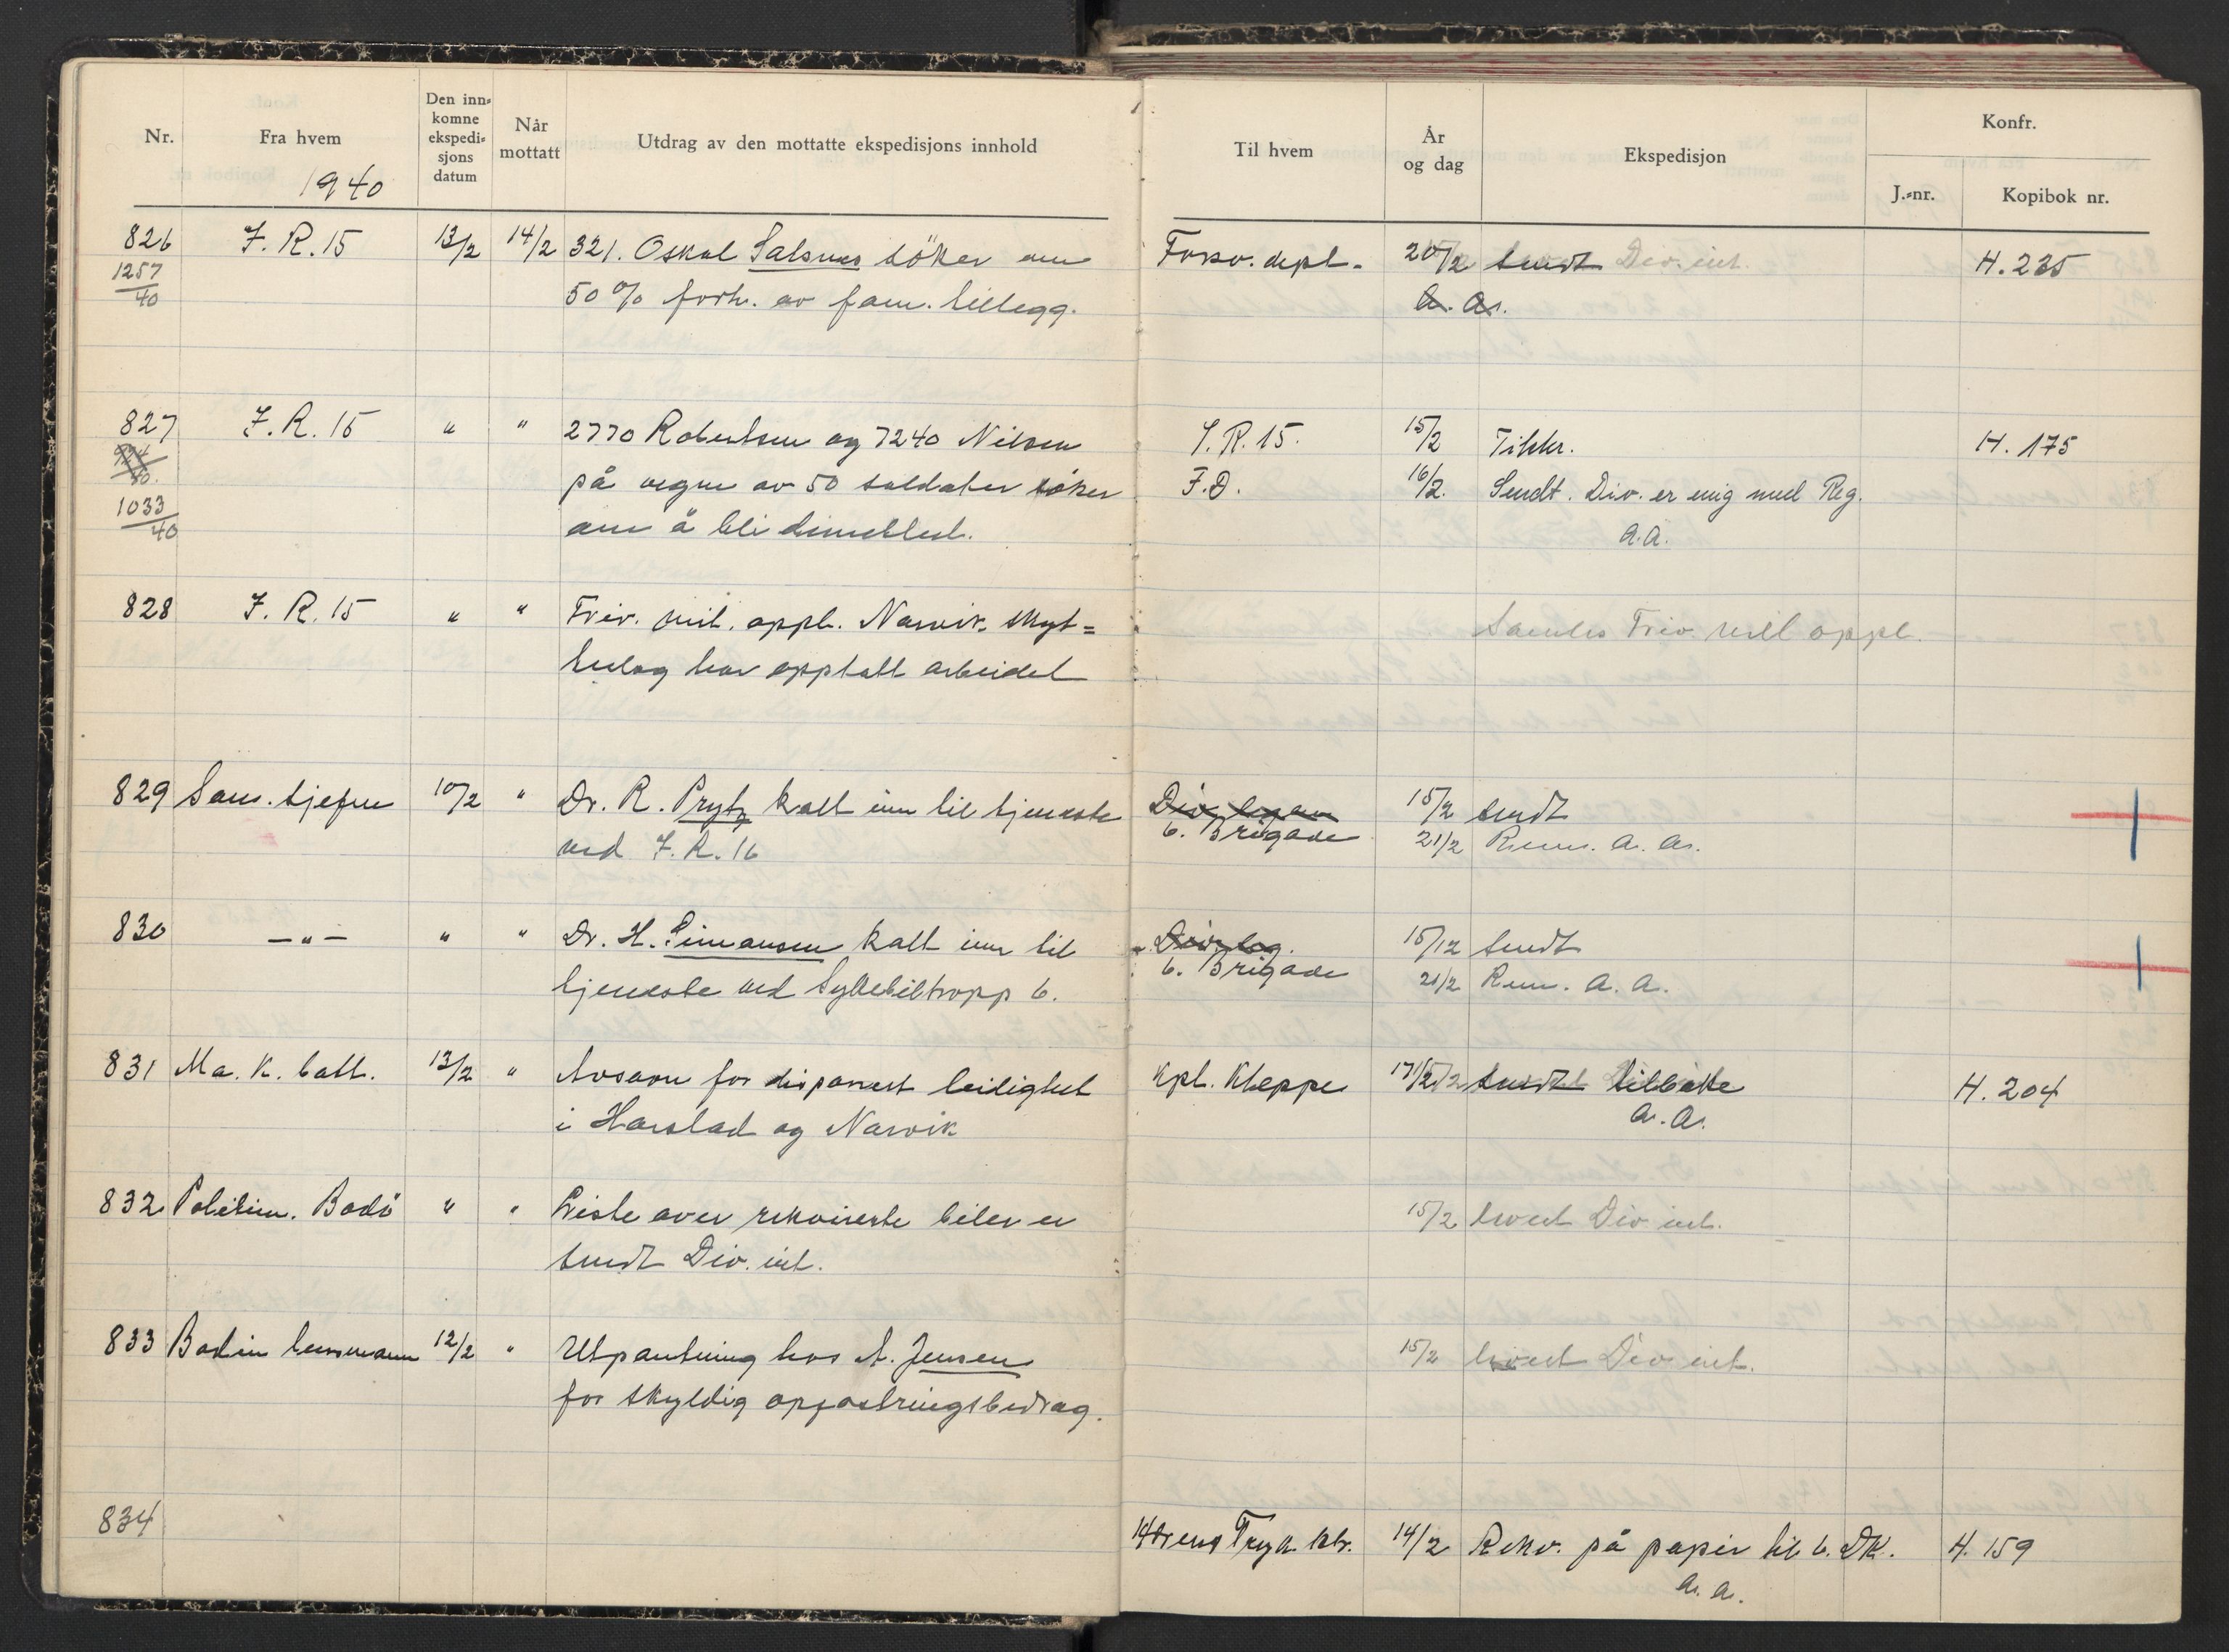 Nr. Fra hvem Den inn-komne ekspedi-sjons datum Når mottatt Utdrag av den mottatte ekspedisjons innhold Til hvem År og dag Ekspedisjon Konfr. J.-nr. Kopibok nr.
1940
826 I. R. 15 13/2 14/2 321. Oskal Salsnes söker om Forsv. dept. 20/2 sendt Div. int. H. 235
1257/40 50 % forh. av fam. tillegg. a. a.
827 I. R. 15 " " 2770 Robertsen og 7240 Nilsen I. R. 15. 15/2 Tilskr. H. 175
40. på vegne av 50 soldater söker F. D. 16/2. Sendt. Div. er enig med Reg.
1033/40 om å bli dimittert. a.a.
828 I. R. 15 " " Friv. mil. oppl. Narvik skyt=
terlag har opptatt arbeidet Samles Friv. mill oppl.
829 San. sjefen 10/2 " Dr. R. Prytz kalt inn til tjeneste Div. legen 15/2 sendt
ved I. R. 16 6. Brigade 21/2 Renv. a. a.
830 — " — " " Dr. H. Simonsen kalt inn til Div. leg. 15/12 sendt
tjeneste ved Sykebiltropp 6. 6. Brigade 21/2 Renv. a. a.
831 Ma. K. batt. 13/2 " Ansvar for disponert leilighet Kpt. Kleppe 17/2 sendt tilbake H. 204
i Harstad og Narvik a. a.
832. Politim. Bodö " " Liste over rekvirerte biler er 15/2 levert Div. int.
sendt Div. int.
833 Bodin lensmann 12/2 " Utpantning hos A. Jensen 15/2 levert Div. int.
for skyldig oppfostringsbidrag.
834 Hærens Tryk. ktr. 14/2 Rekv. på papir til 6. DK. H. 159
a. a.